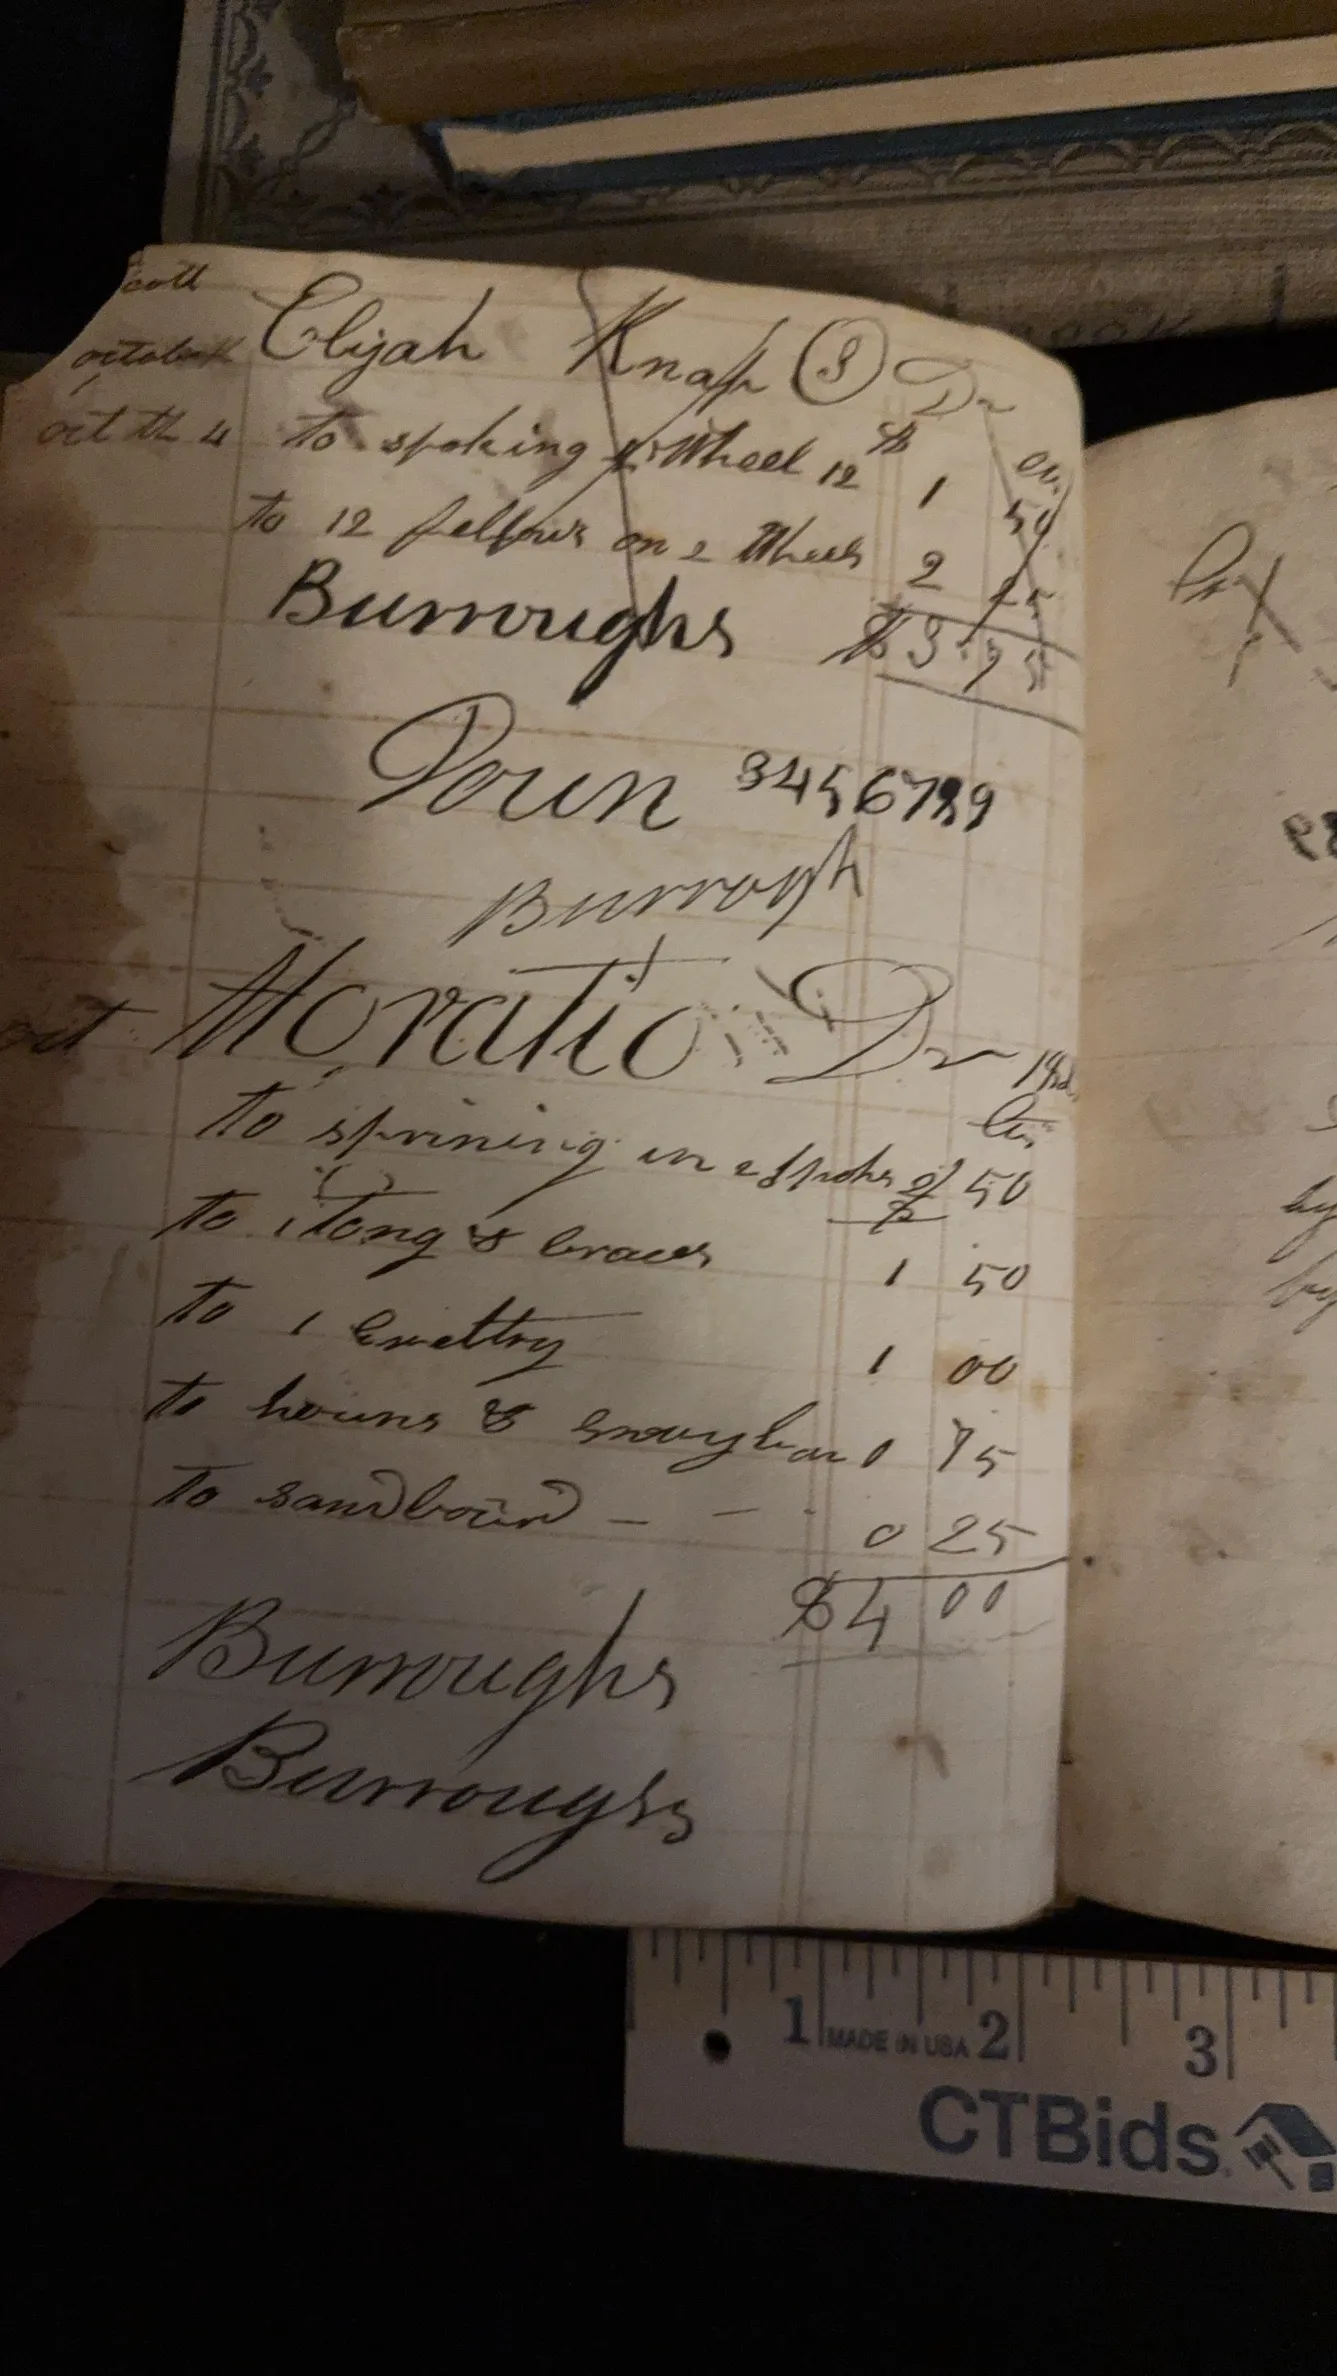 Elijah Knap 3 Dr
oct th 4 to spoking 2 Wheel 12 1 50
to 12 fellows on 2 Wheels 2 25
Burroughs $3.75
Doun 3456789
Burrogh
oct Horatio Dr
cts
to sprining in 2 spoks of 50
to 1 Tong & braces 1 50
to 1 1 00
to houns & swaybar 0 75
to sandbourd - - 0 25
$4 00
Burroughs
Burroughs
by
by
1 2 3
MADE IN USA
CTBids